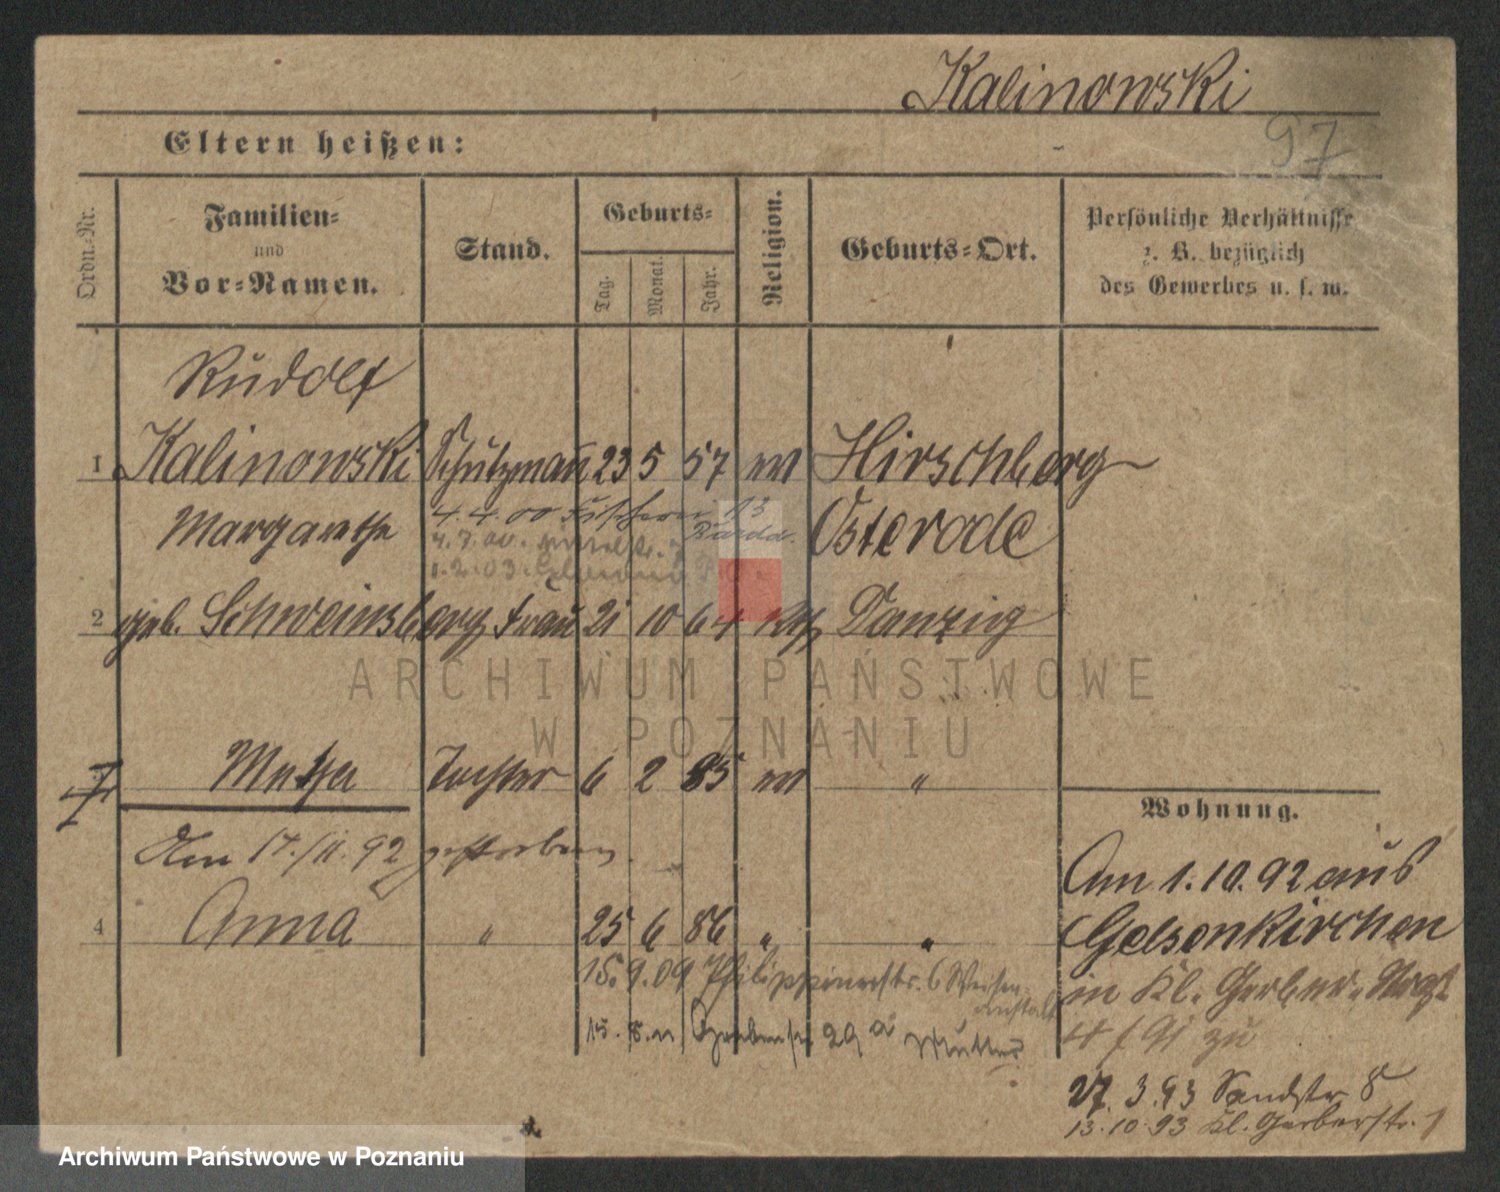 Kalinowski
97
Eltern heißen:
Ordn.=Nr.
Familien=
und
Vor=Namen.
Stand.
Geburts=
Tag.
Monat.
Jahr.
Religion.
Geburts=Ort.
Persönliche Verhältnisse
z. B. bezüglich
des Gewerbes u. s. w.
Rudolf
1 Kalinowski Schutzmann 23 5 57 ev Hirschberg
Margarethe 4.4.00 Fischerei 13 Osterode
4.7.00
1.2.03
2 geb. Schweinsberg Frau 21 10 64 Danzig
ARCHIWUM PAŃSTWOWE
W POZNANIU
Tochter 6 2 85 ev "
Wohnung.
Am 17./11.92 gestorben.
Am 1.10.92 aus
4 Anna " 25 6 86 " "
Gelsenkirchen
15.9.09 Philippinenstr. 6 Waisen-
anstalt
in Kl. Gerber
zu
15.8.11 29a Mutter
27.3.93 Sandstr 8
13.10.93 Kl. Gerberstr. 1
Archiwum Państwowe w Poznaniu